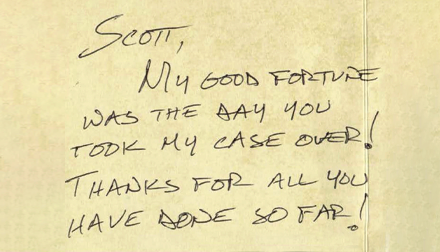 SCOTT,
MY GOOD FORTUNE
WAS THE DAY YOU
TOOK MY CASE OVER!
THANKS FOR ALL YOU
HAVE DONE SO FAR!